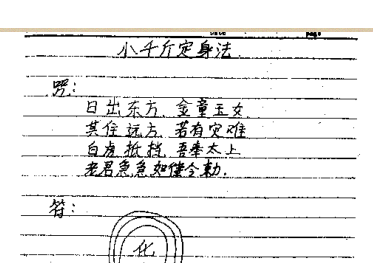 Date page
小千斤定身法
咒：
日出东方 金童玉女
其住远方 若有灾难
白虎抵挡 吾奉太上
老君急急如律令勅.
符：
化